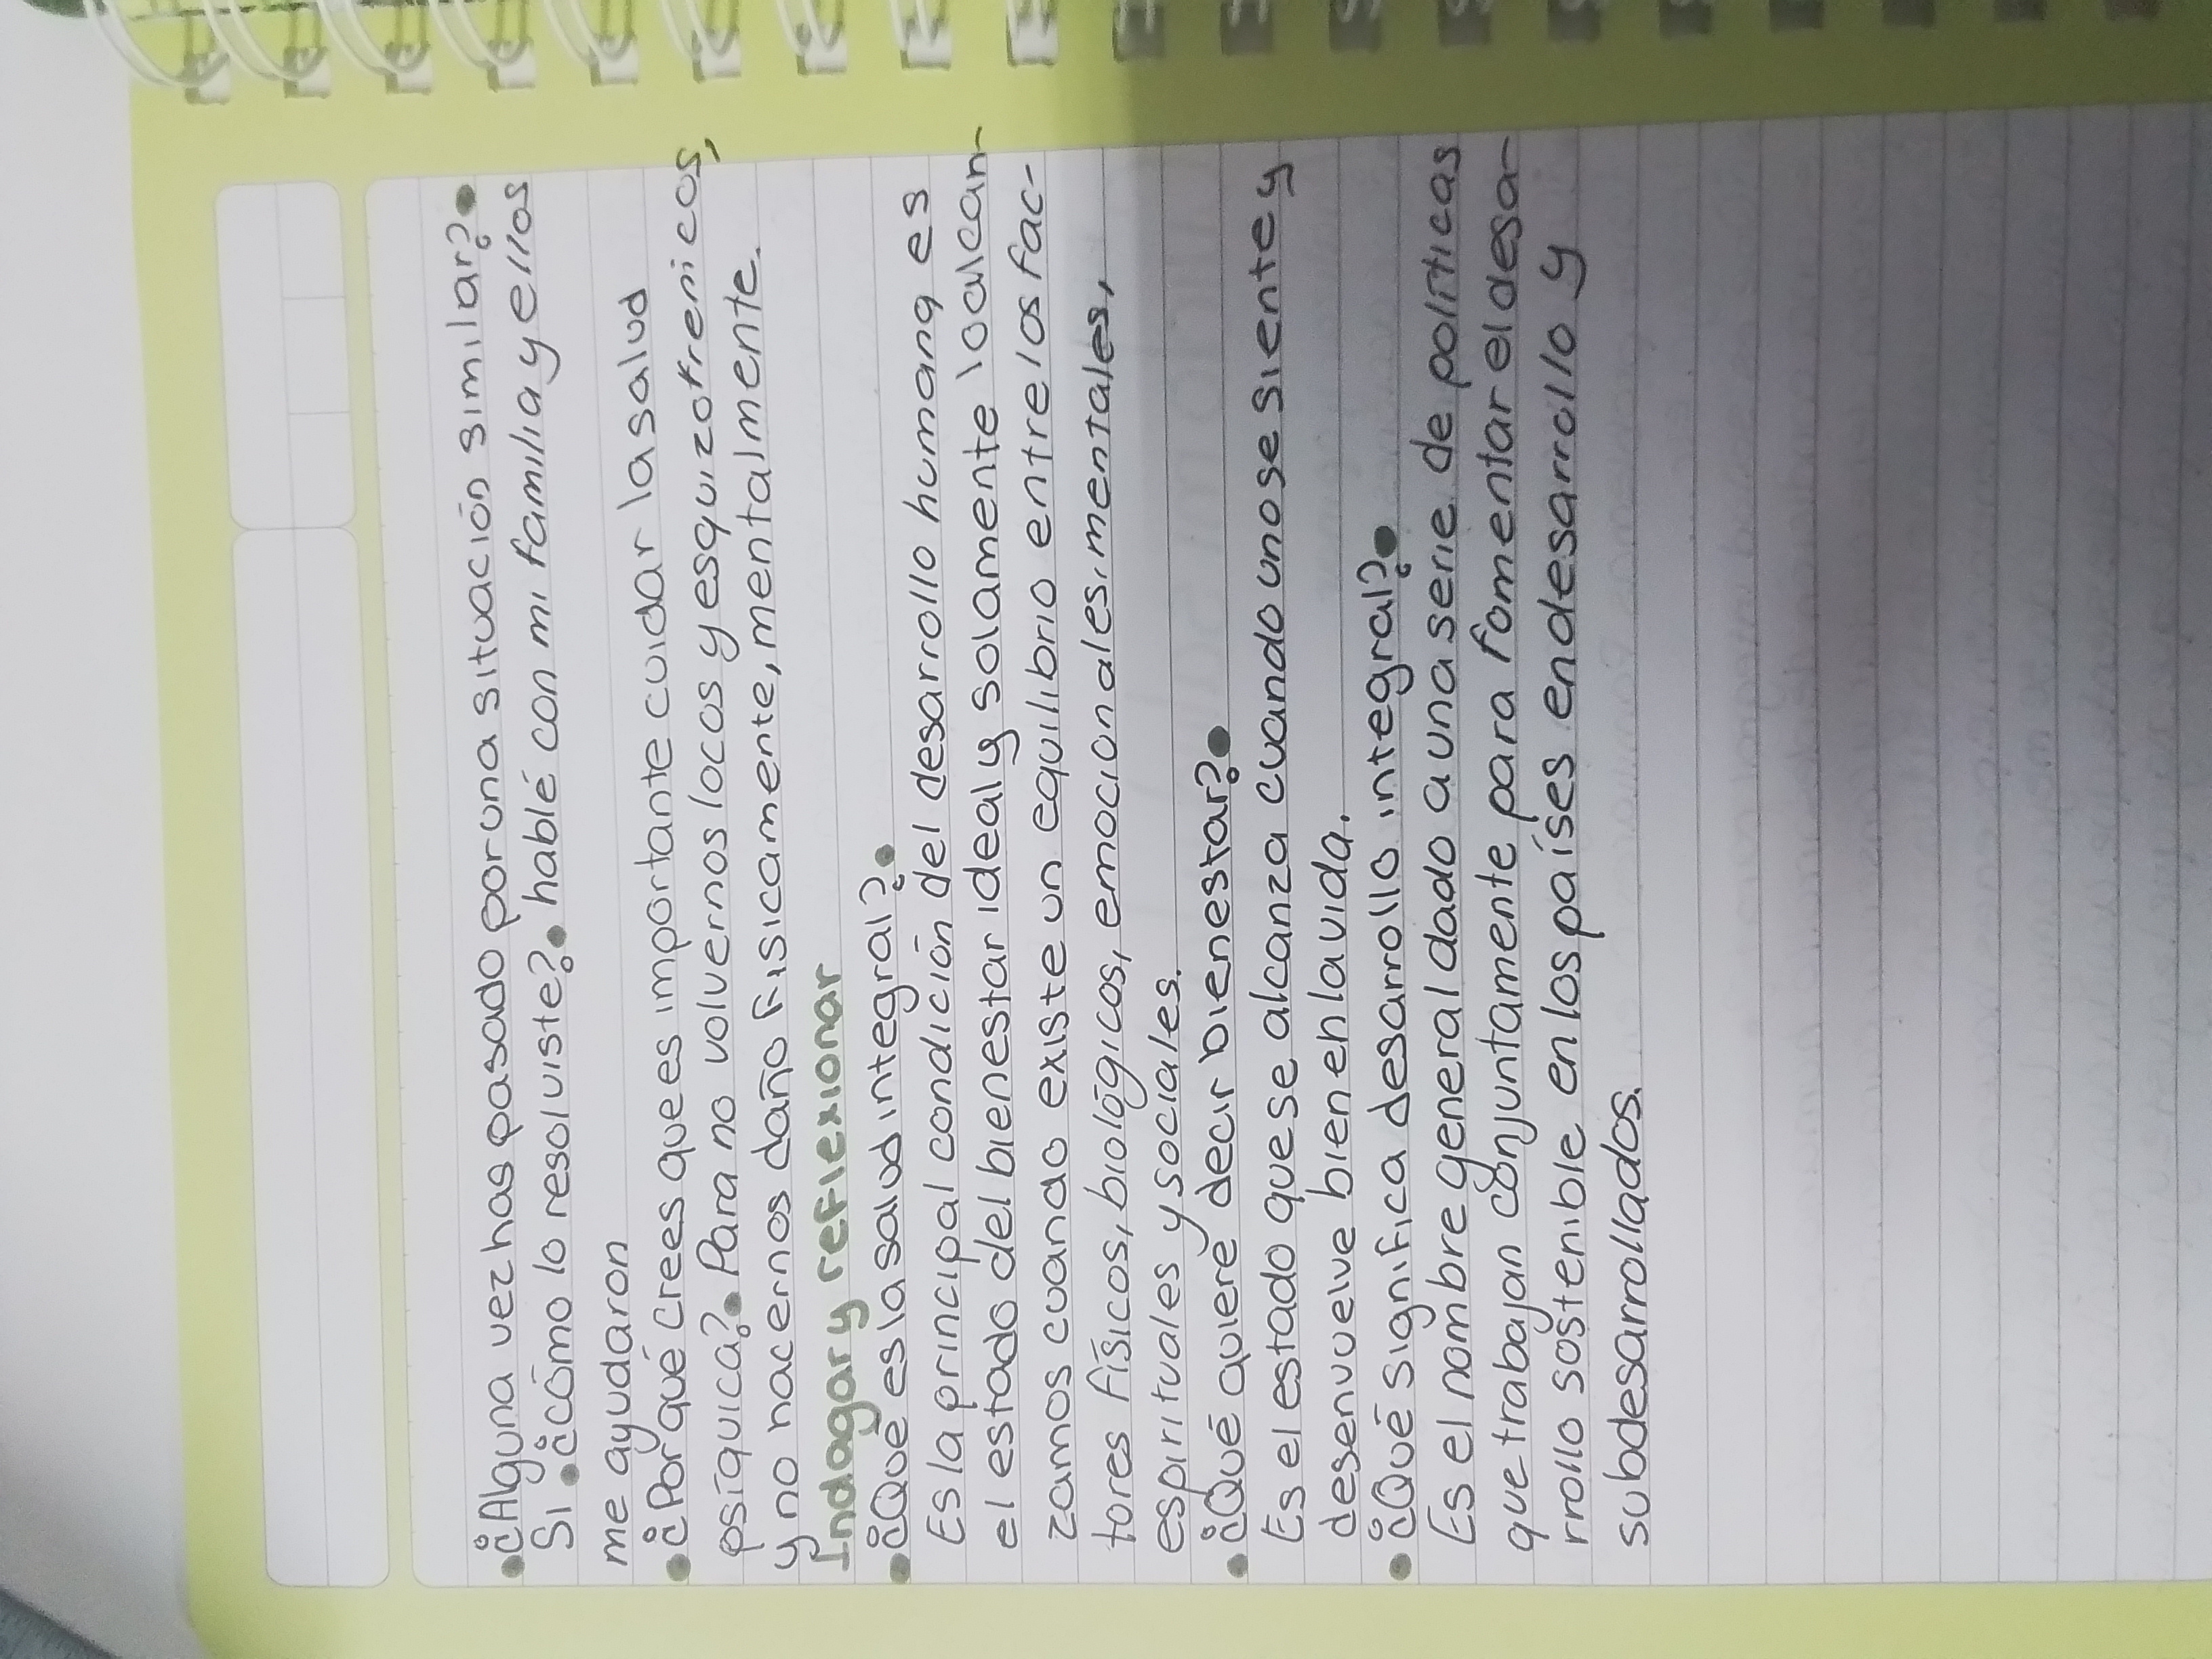 • ¿Alguna vez has pasado por una situación similar? •
Si • ¿cómo lo resolviste? • hablé con mi familia y ellos
me ayudaron
• ¿Por qué crees que es importante cuidar la salud
psíquica? • Para no volvernos locos y esquizofrenicos,
y no hacernos daño fisicamente, mentalmente.
Indagar y reflexionar
• ¿Qué es la salud integral? •
Es la principal condición del desarrollo humano es
el estado del bienestar ideal y solamente lo alcan-
zamos cuando existe un equilibrio entre los fac-
tores físicos, biológicos, emocionales, mentales,
espirituales y sociales.
• ¿Qué quiere decir bienestar? •
Es el estado que se alcanza cuando uno se siente y
desenvuelve bien en la vida.
• ¿Qué significa desarrollo integral? •
Es el nombre general dado a una serie de políticas
que trabajan conjuntamente para fomentar el desa-
rrollo sostenible en los países en desarrollo y
subdesarrollados.